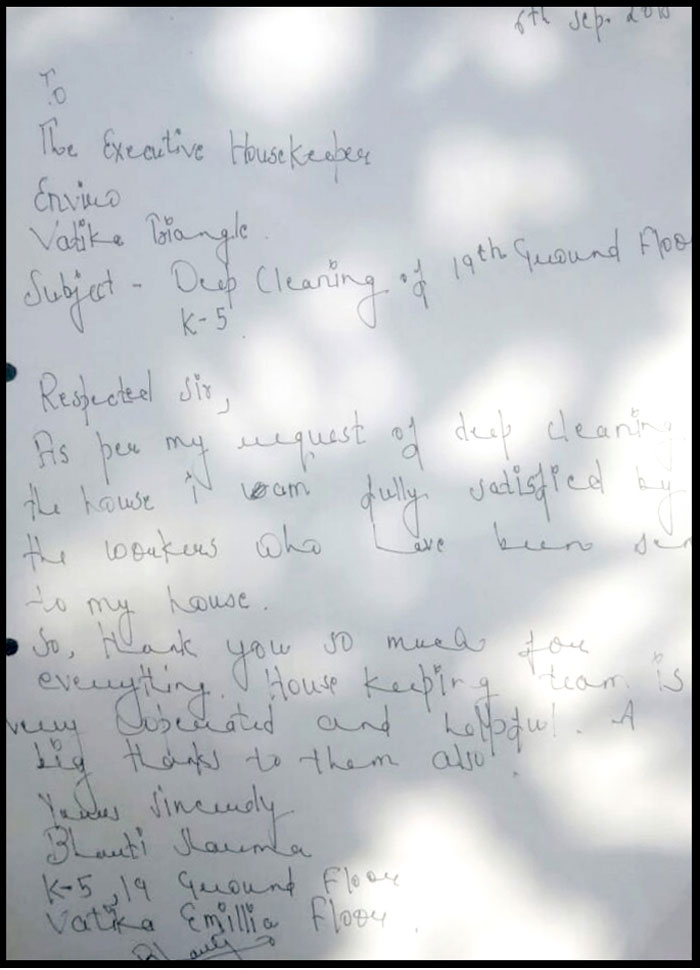 6th Sep. 2018
To
The Executive Housekeeper
Enviro
Vatika Triangle.
Subject - Deep Cleaning of 19th Ground Floo
K-5.
Respected Sir,
As per my request of deep cleaning
the house i am fully satisfied by
the workers who have been sen
to my house.
So, thank you so much for
everything. House keeping team is
very and helpful. A
big thanks to them also.
Yours Sincerely
Bharti Sharma
K-5, 19 Ground Floor
Vatika Emillia Floor.
Bharti